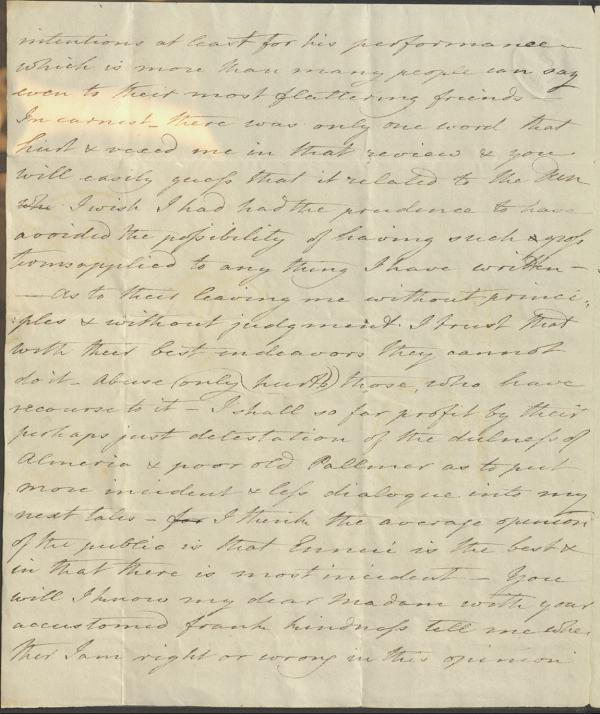 intentions at least for his performance –
which is more than many people can say
even to their most flattering friends –
In earnest – there was only one word that
hurt & vexed me in that review & you
will easily guess that it related to the Dun
who I wish I had had the prudence to have
avoided the possibility of having such gross
terms applied to any thing I have written –
– As to their leaving me without princi-
ples & without judgment I trust that
with their best endeavors they cannot
do it – Abuse (only hurts) those who have
recourse to it – I shall so far profit by their
perhaps just detestation of the dulness of
Almeria & poor old Pallmer as to put
more incident & less dialogue into my
next tales – for I think the average opinion
of the public is that Ennui is the best &
in that there is most incident – You
will I know my dear Madam with your
accustomed frank kindness tell me whe-
ther I am right or wrong in this opinion